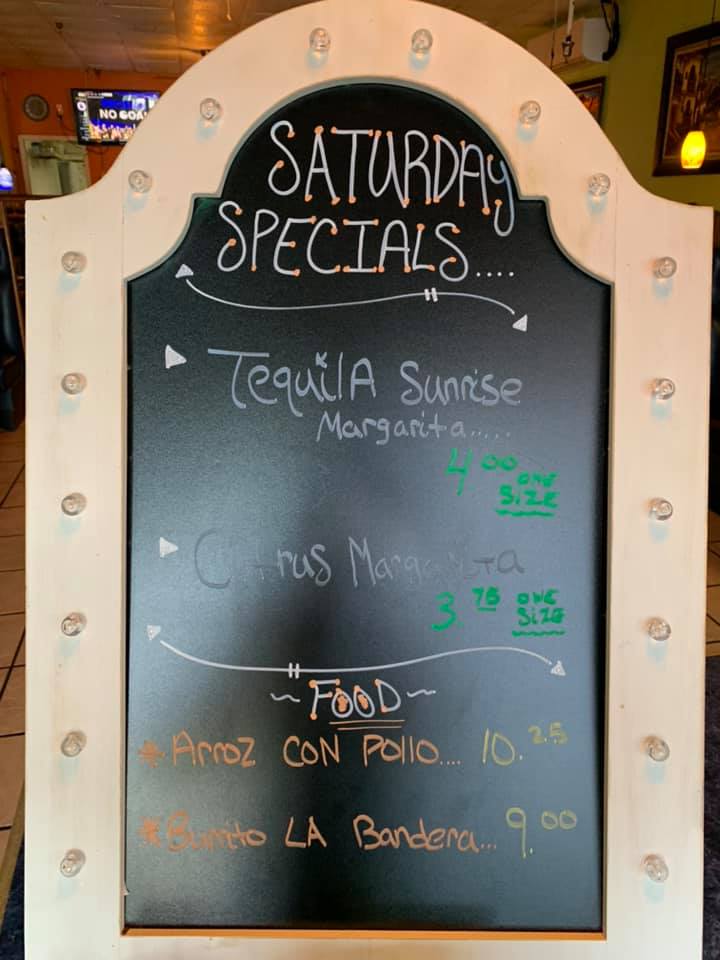 NO GOAL
SATURDAY
SPECIALS....
TequilA Sunrise
Margarita.....
4.00 ONE
SIZE
Citrus Margarita
3.75 ONE
SIZE
~ FOOD ~
* Arroz CON Pollo.... 10.25
* Burrito LA Bandera... 9.00